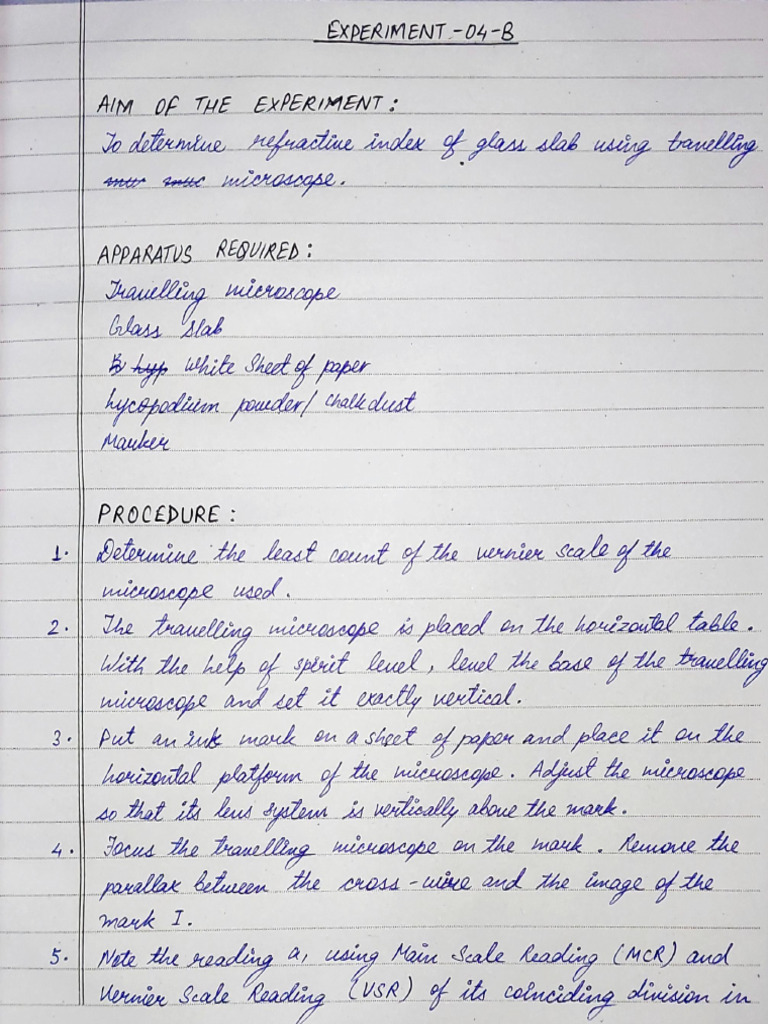 EXPERIMENT-04-B
AIM OF THE EXPERIMENT:
To determine refractive index of glass slab using travelling
microscope.
APPARATUS REQUIRED:
Travelling microscope
Glass slab
White Sheet of paper
lycopodium powder/ chalkdust
Marker
PROCEDURE:
1. Determine the least count of the vernier scale of the
microscope used.
2. The travelling microscope is placed on the horizontal table.
With the help of spirit level, level the base of the travelling
microscope and set it exactly vertical.
3. Put an ink mark on a sheet of paper and place it on the
horizontal platform of the microscope. Adjust the microscope
so that its lens system is vertically above the mark.
4. Focus the travelling microscope on the mark. Remove the
parallax between the cross-wire and the image of the
mark I.
5. Note the reading a, using Main Scale Reading (MCR) and
Vernier Scale Reading (VSR) of its coinciding division in